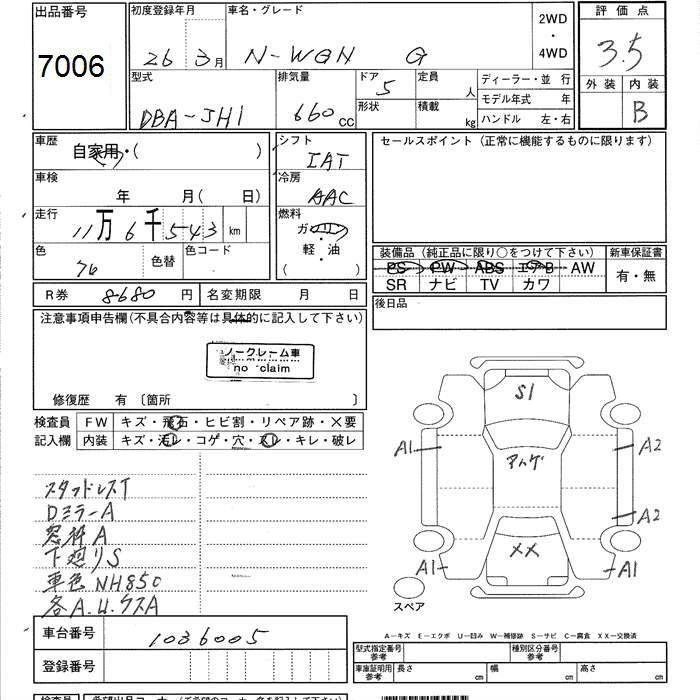 出品番号
7006
初度登録年月
26 3月
車名・グレード
N-WGN G
2WD
・
4WD
評価点
3.5
外装 内装
B
型式
DBA-JH1
排気量
660 cc
ドア 5
形状
定員 人
積載 kg
ディーラー・並行
モデル年式 年
ハンドル 左・右
車歴
自家用・( )
車検
年 月( 日)
走行
11万6千543 km
色
色替
色コード
シフト
IAT
冷房
AAC
燃料
ガソリン
・
軽・油
・
( )
セールスポイント (正常に機能するものに限ります)
装備品 (純正品に限り○をつけて下さい)
PS PW ABS エアB AW
SR ナビ TV カワ
新車保証書
有・無
R券 8680 円
名変期限 月 日
後日品
注意事項申告欄(不具合内容等は具体的に記入して下さい)
ノークレーム車
no claim
修復歴 有 〔箇所 〕
検査員
記入欄
FW キズ・飛石・ヒビ割・リペア跡・×要
内装 キズ・汚レ・コゲ・穴・スレ・キレ・破レ
スタッドレスT
DミラーA
窓枠A
下廻りS
車色NH850
各A.U.クスA
S1
A1
アハゲ
A2
A2
XX
A1
A1
スペア
A―キズ E―エクボ U―凹み W―補修跡 S―サビ C―腐食 XX―交換済
車台番号
1036005
登録番号
型式指定番号
参考
種別区分番号
参考
車庫証明用
参考
長さ cm
幅 cm
高さ cm